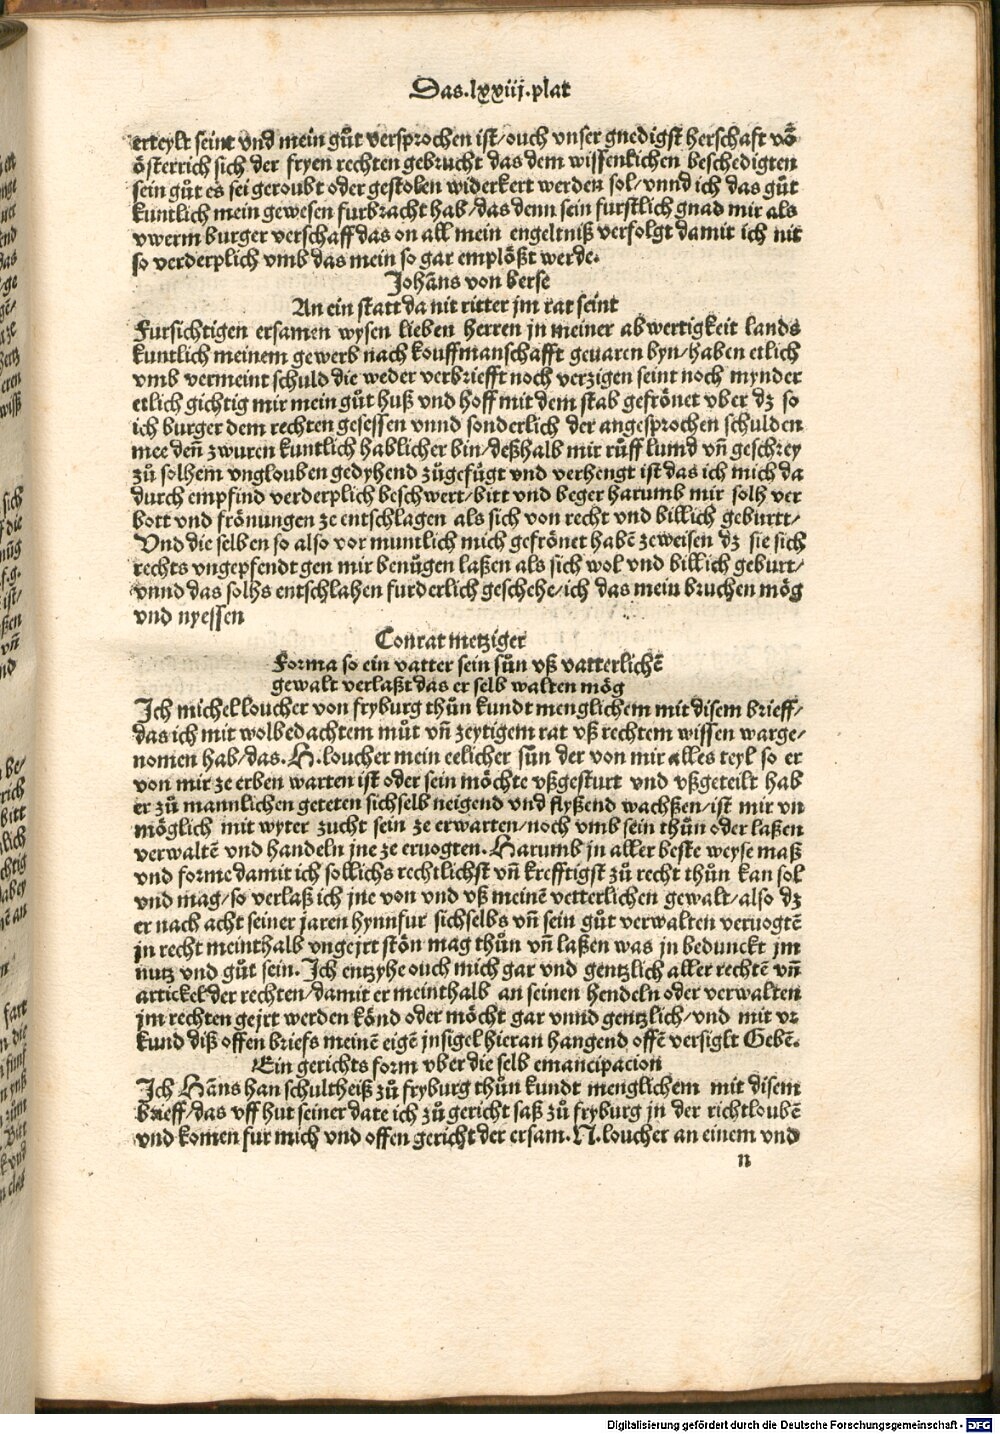 Das.lxxiij.plat
erteylt seint vnd mein gůt versprochen ist/ouch vnser gnedigst herschaft vō
österrich sich der fryen rechten gebrucht das dem wissenlichen beschedigten
sein gůt es sei geroubt oder gestolen widerkert werden sol/vnnd ich das gůt
kuntlich mein gewesen furbracht hab/das denn sein furstlich gnad mir als
vwerm burger verschaff das on all mein engeltniß verfolgt damit ich nit
so verderplich vmb das mein so gar emplößt werde.
Johāns von berse
An ein statt da nit ritter jm rat seint
Fursichtigen ersamen wysen lieben herren jn meiner abwertigkeit lands
kuntlich meinem gewerb nach kouffmanschafft geuaren byn/haben etlich
vmb vermeint schuld die weder verbriefft noch verzigen seint noch mynder
etlich gichtig mir mein gůt huß vnd hoff mit dem stab gefrönet vber dz so
ich burger dem rechten gesessen vnnd sonderlich der angesprochen schulden
mee deñ zwuren kuntlich hablicher bin/deßhalb mir růff lumd vñ geschrey
zů solhem vnglouben gedyhend zůgefůgt vnd verhengt ist das ich mich da
durch empfind verderplich beschwert/bitt vnd beger harumb mir solh ver
bott vnd frönungen ze entschlagen als sich von recht vnd billich geburtt/
Vnd die selben so also vor muntlich mich gefrönet habē zeweisen dz sie sich
rechts vngepfendt gen mir benůgen laßen als sich wol vnd billich geburt/
vnnd das solhs entschlahen furderlich geschehe/ich das mein bruchen mög
vnd nyessen
Conrat metziger
Forma so ein vatter sein sůn vß vatterlichē
gewalt verlaßt das er selb walten mög
Ich michel loucher von fryburg thůn kundt menglichem mit disem brieff/
das ich mit wolbedachtem můt vñ zeytigem rat vß rechtem wissen warge-
nomen hab/das.H.loucher mein eelicher sůn der von mir alles teyl so er
von mir ze erben warten ist oder sein möchte vßgesturt vnd vßgeteilt hab
er zů mannlichen geteten sichselb neigend vnd flyßend wachßen/ist mir vn
möglich mit wyter zucht sein ze erwarten/noch vmb sein thůn oder laßen
verwaltē vnd handeln jne ze eruogten.Harumb jn aller beste weyse maß
vnd forme damit ich sollichs rechtlichst vñ krefftigst zů recht thůn kan sol
vnd mag/so verlaß ich jne von vnd vß meinē vetterlichen gewalt/also dz
er nach acht seiner jaren hynnfur sichselbs vñ sein gůt verwalten veruogtē
jn recht meinthalb vngejrt stōn mag thůn vñ laßen was jn bedunckt jm
nutz vnd gůt sein.Ich entzyhe ouch mich gar vnd gentzlich aller rechtē vñ
artickel der rechten/damit er meinthalb an seinen hendeln oder verwalten
jm rechten gejrt werden kōnd oder möcht gar vnnd gentzlich/vnd mit vr
kund diß offen briefs meinē eigē jnsigel hieran hangend offē versiglt Gebē.
Ein gerichts form vber die selb emancipacion
Ich Hāns han schultheiß zů fryburg thůn kundt menglichem mit disem
brieff/das vff hut seiner date ich zů gericht saß zů fryburg jn der richtloubē
vnd komen fur mich vnd offen gericht der ersam.N.loucher an einem vnd
n
Digitalisierung gefördert durch die Deutsche Forschungsgemeinschaft - DFG